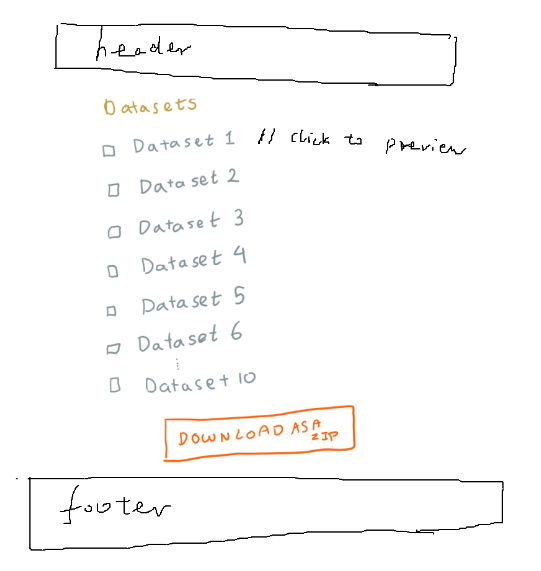 header
Datasets
Dataset 1 // click to preview
Dataset 2
Dataset 3
Dataset 4
Dataset 5
Dataset 6
Dataset 10
DOWNLOAD AS A
ZIP
footer